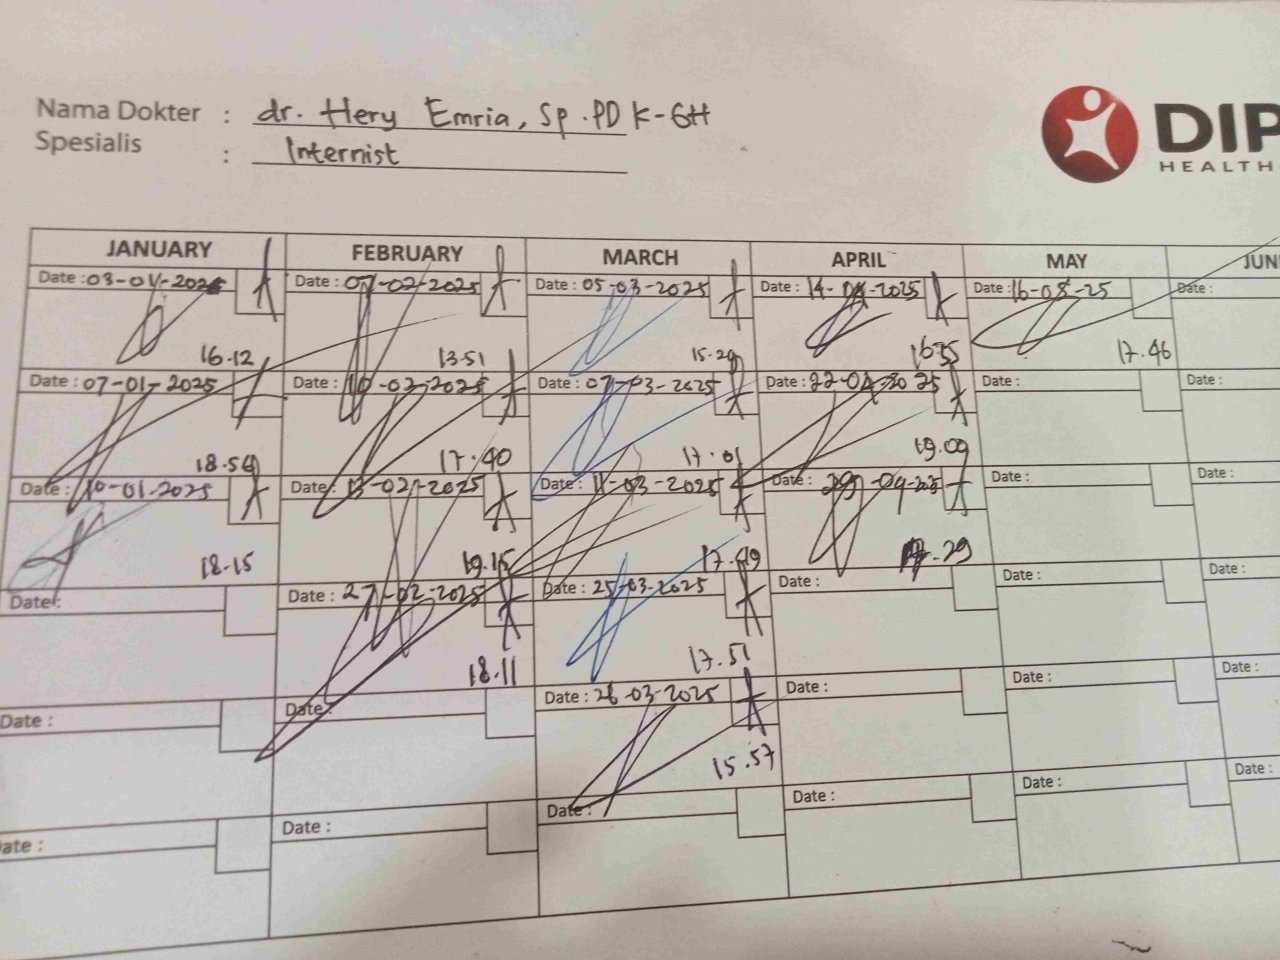 Nama Dokter : dr. Hery Emria, Sp.PD K-GH
Spesialis : Internist
DIP
HEALTH
JANUARY FEBRUARY MARCH APRIL MAY JUN
Date : 03-01-2025 Date : 07-02-2025 Date : 05-03-2025 Date : 14-04-2025 Date : 16-05-25 Date :
16.12 13.51 15.29 16.55 17.46
Date : 07-01-2025 Date : 10-02-2025 Date : 07-03-2025 Date : 22-04-2025 Date : Date :
18.54 17.40 17.01 19.09
Date : 10-01-2025 Date : 13-02-2025 Date : 11-03-2025 Date : 29-04-2025 Date : Date :
18.15 19.15 17.49 17.29
Date : Date : 27-02-2025 Date : 25-03-2025 Date : Date : Date :
18.11 17.51
Date : Date : Date : 26-03-2025 Date : Date : Date :
15.57
ate : Date : Date : Date : Date : Date :